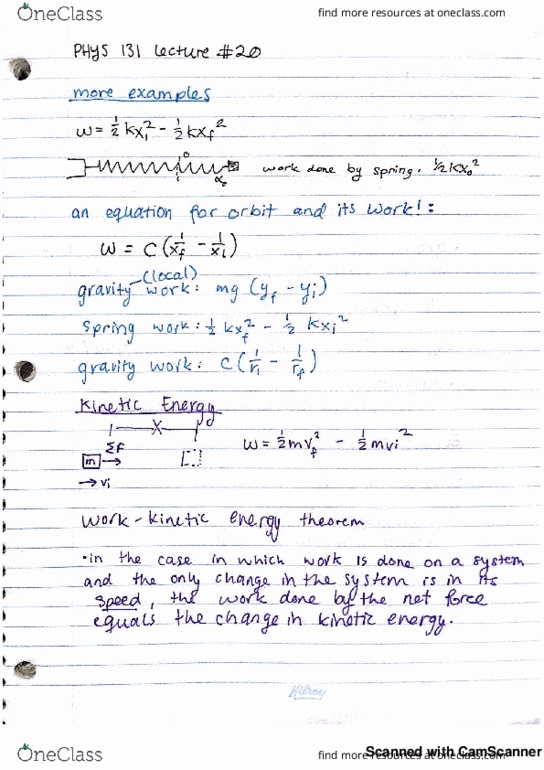 OneClass find more resources at oneclass.com
PHYS 131 Lecture #20
more examples
W = ½ kxi² - ½ kxf²
0
x₀
work done by spring. ½ kx₀²
an equation for orbit and its work!:
W = C (1/xf - 1/xi)
(local)
gravity work: mg (yf - yi)
spring work: ½ kxf² - ½ kxi²
gravity work: C (1/ri - 1/rf)
Kinetic Energy
X
ΣF
m
W = ½ mvf² - ½ mvi²
vi
work - kinetic energy theorem
• in the case in which work is done on a system
and the only change in the system is in its
speed, the work done by the net force
equals the change in kinetic energy.
Kilroy
Scanned with CamScanner
OneClass find more resources at oneclass.com